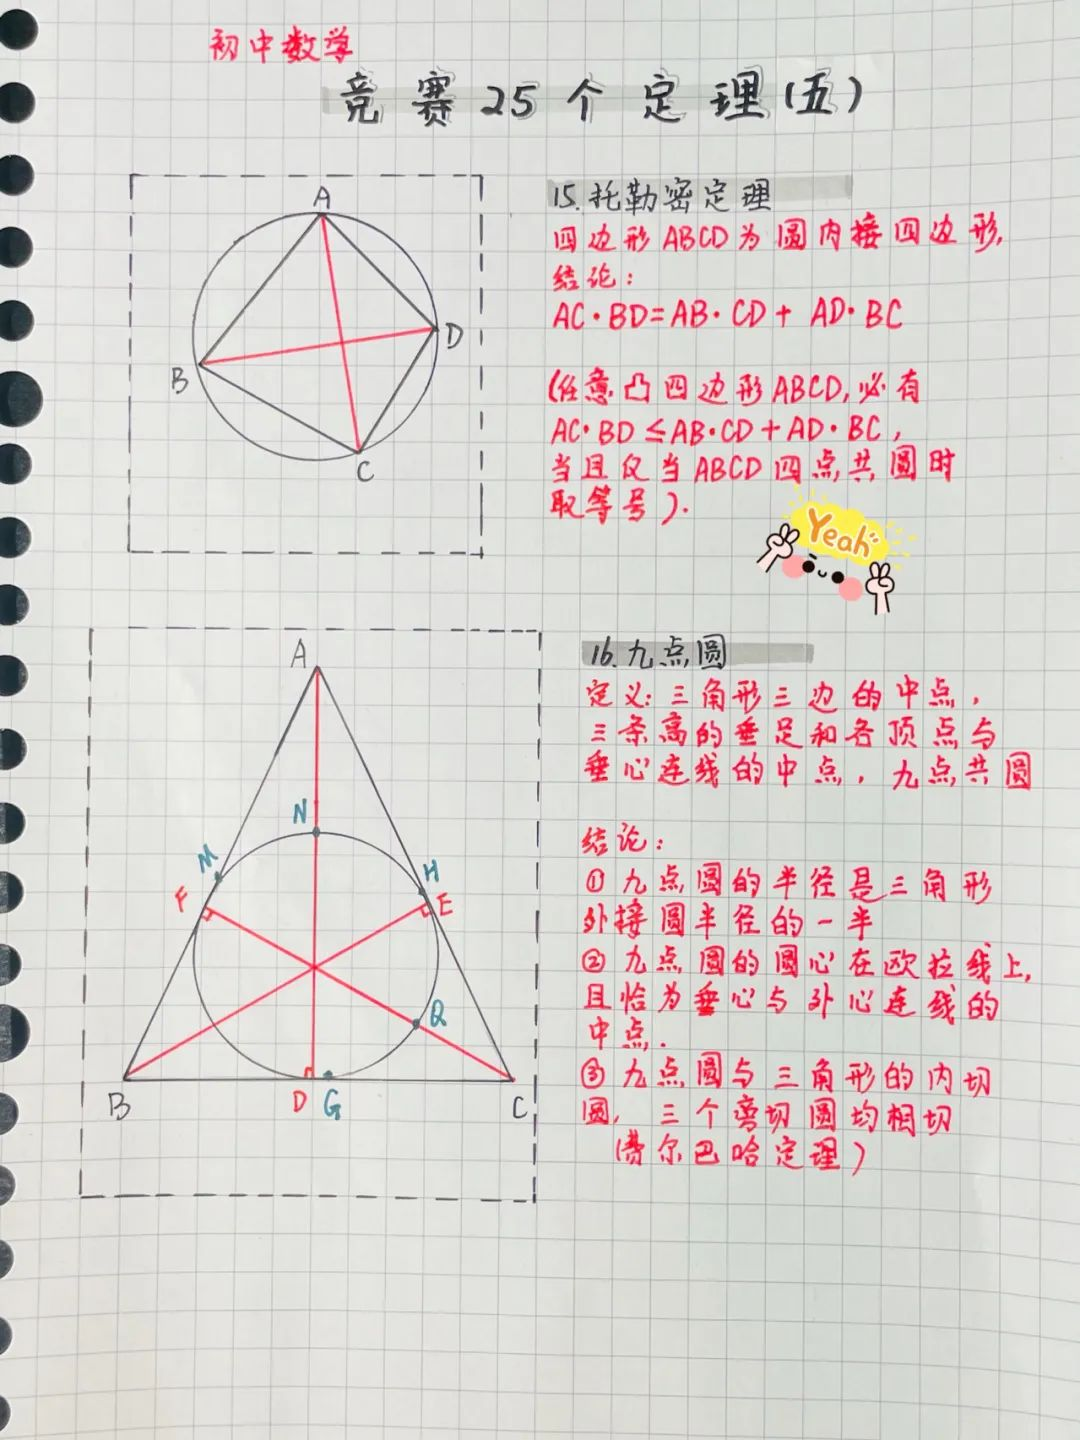 初中数学
竞赛25个定理(五)
A
B
C
D
15.托勒密定理
四边形ABCD为圆内接四边形,
结论:
AC·BD=AB·CD+AD·BC
(任意凸四边形ABCD,必有
AC·BD≤AB·CD+AD·BC,
当且仅当ABCD四点共圆时
取等号).
Yeah
A
N
M
H
F
E
Q
B
D
G
C
16.九点圆
定义:三角形三边的中点,
三条高的垂足和各顶点与
垂心连线的中点,九点共圆
结论:
①九点圆的半径是三角形
外接圆半径的一半
②九点圆的圆心在欧拉线上,
且恰为垂心与外心连线的
中点.
③九点圆与三角形的内切
圆,三个旁切圆均相切
(费尔巴哈定理)